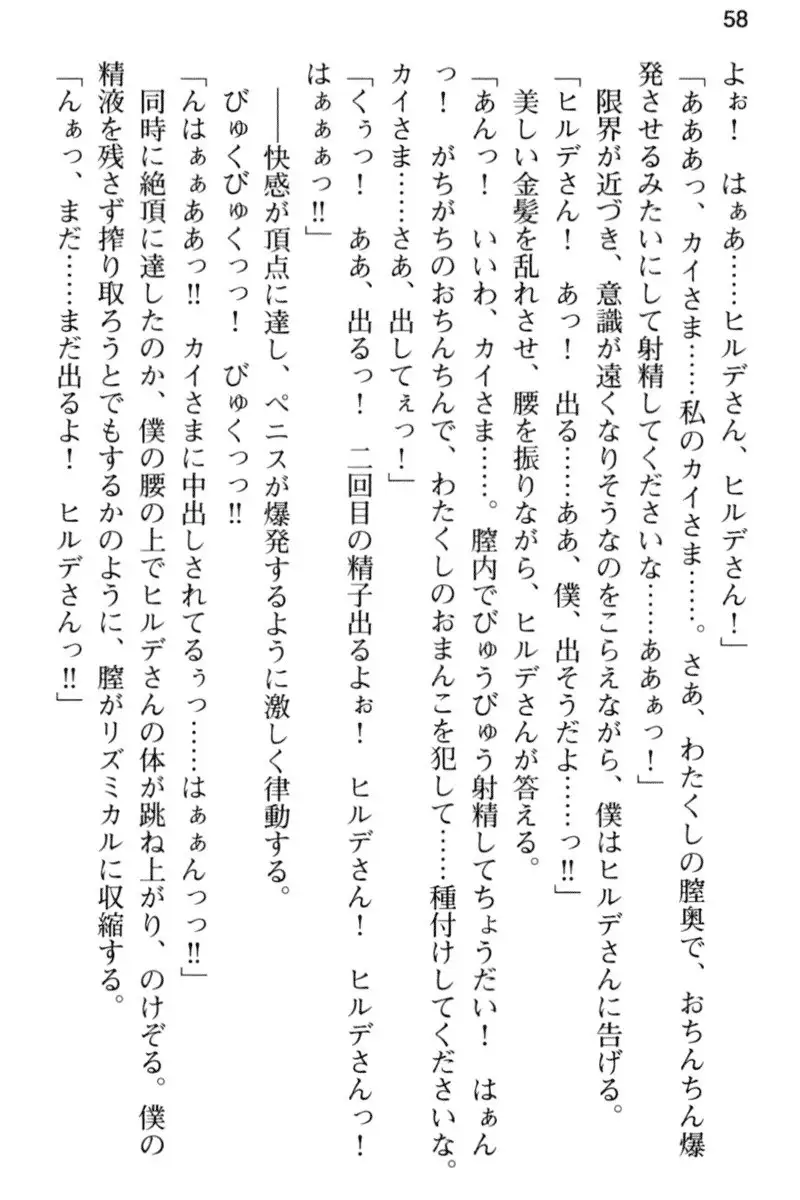 58
よぉ！　はぁあ……ヒルデさん、ヒルデさん！」
「あああっ、カイさま……私のカイさま……。さあ、わたくしの膣奥で、おちんちん爆
発させるみたいにして射精してくださいな……ああぁっ！」
　限界が近づき、意識が遠くなりそうなのをこらえながら、僕はヒルデさんに告げる。
「ヒルデさん！　あっ！　出る……ああ、僕、出そうだよ……っ!!」
　美しい金髪を乱れさせ、腰を振りながら、ヒルデさんが答える。
「あんっ！　いいわ、カイさま……。膣内でびゅうびゅう射精してちょうだい！　はぁん
っ！　がちがちのおちんちんで、わたくしのおまんこを犯して……種付けしてくださいな。
カイさま……さあ、出してぇっ！」
「くぅっ！　ああ、出るっ！　二回目の精子出るよぉ！　ヒルデさん！　ヒルデさんっ！
はぁぁぁっ!!」
　――快感が頂点に達し、ペニスが爆発するように激しく律動する。
　びゅくびゅくっっ！　びゅくっっ!!
「んはぁぁああっ!!　カイさまに中出しされてるぅっ……はぁぁんっっ!!」
　同時に絶頂に達したのか、僕の腰の上でヒルデさんの体が跳ね上がり、のけぞる。僕の
精液を残さず搾り取ろうとでもするかのように、膣がリズミカルに収縮する。
「んぁっ、まだ……まだ出るよ！　ヒルデさんっ!!」